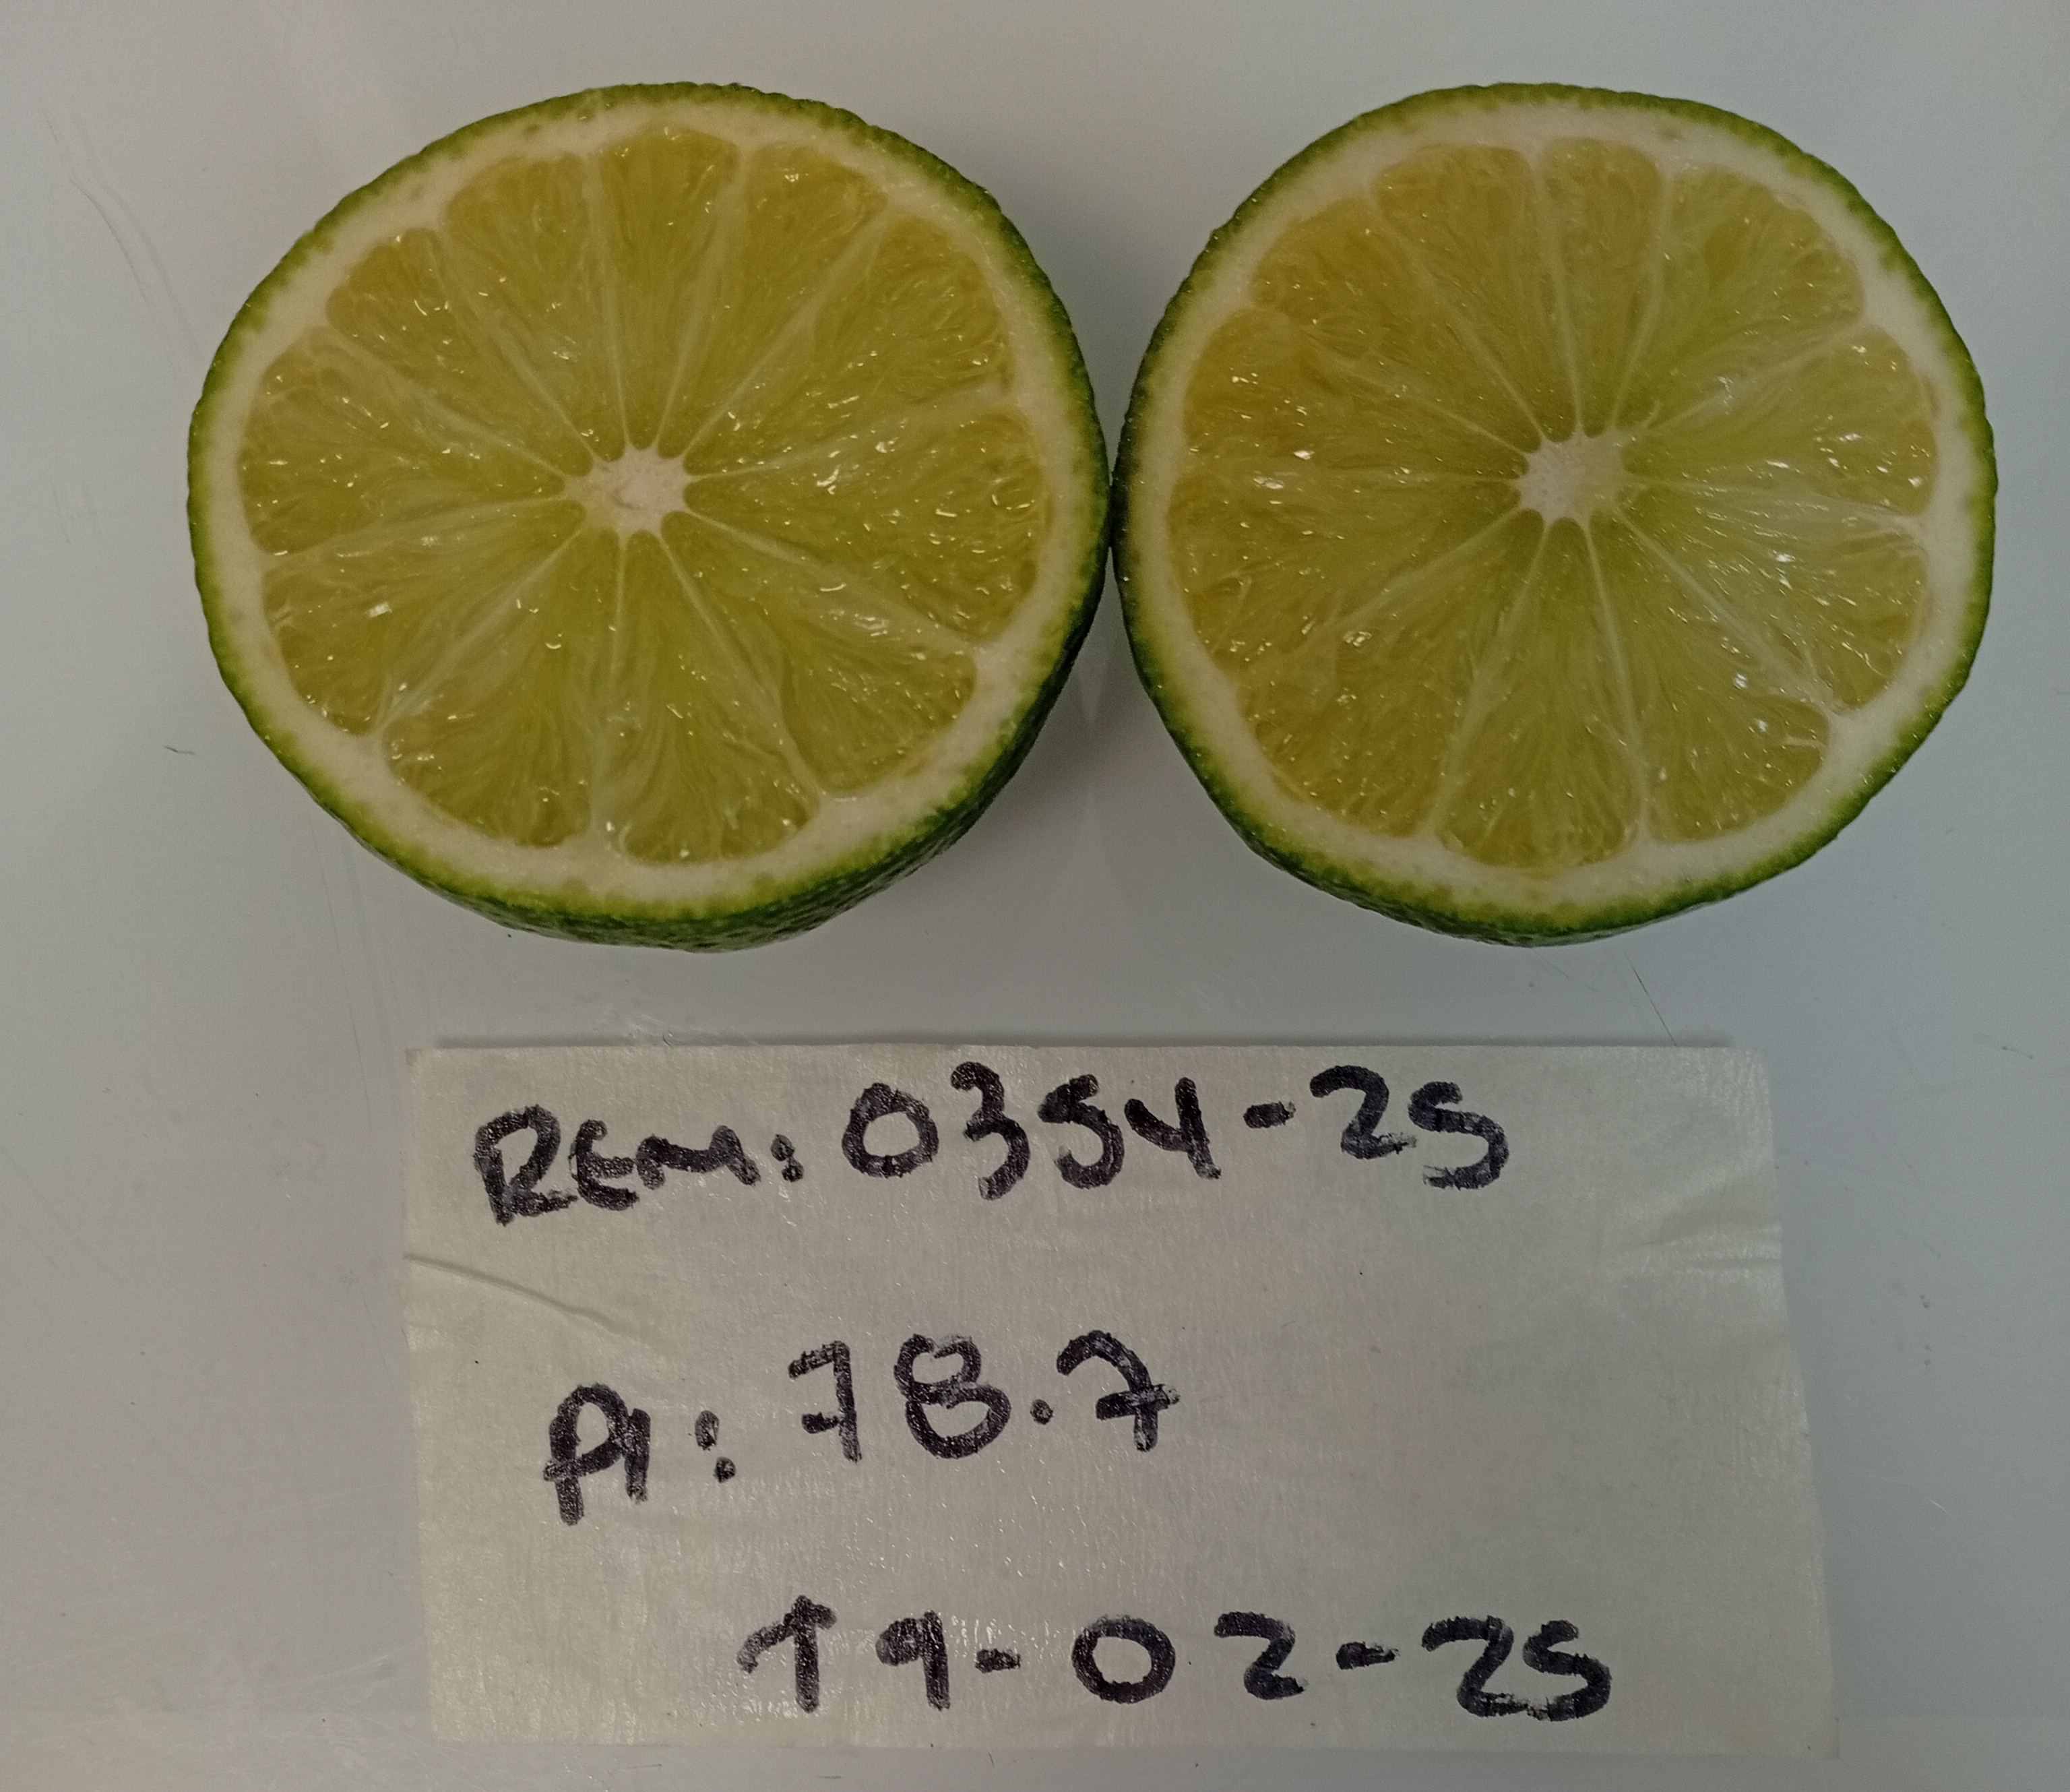 REM: 0354-25
PI: 78.7
19-02-25